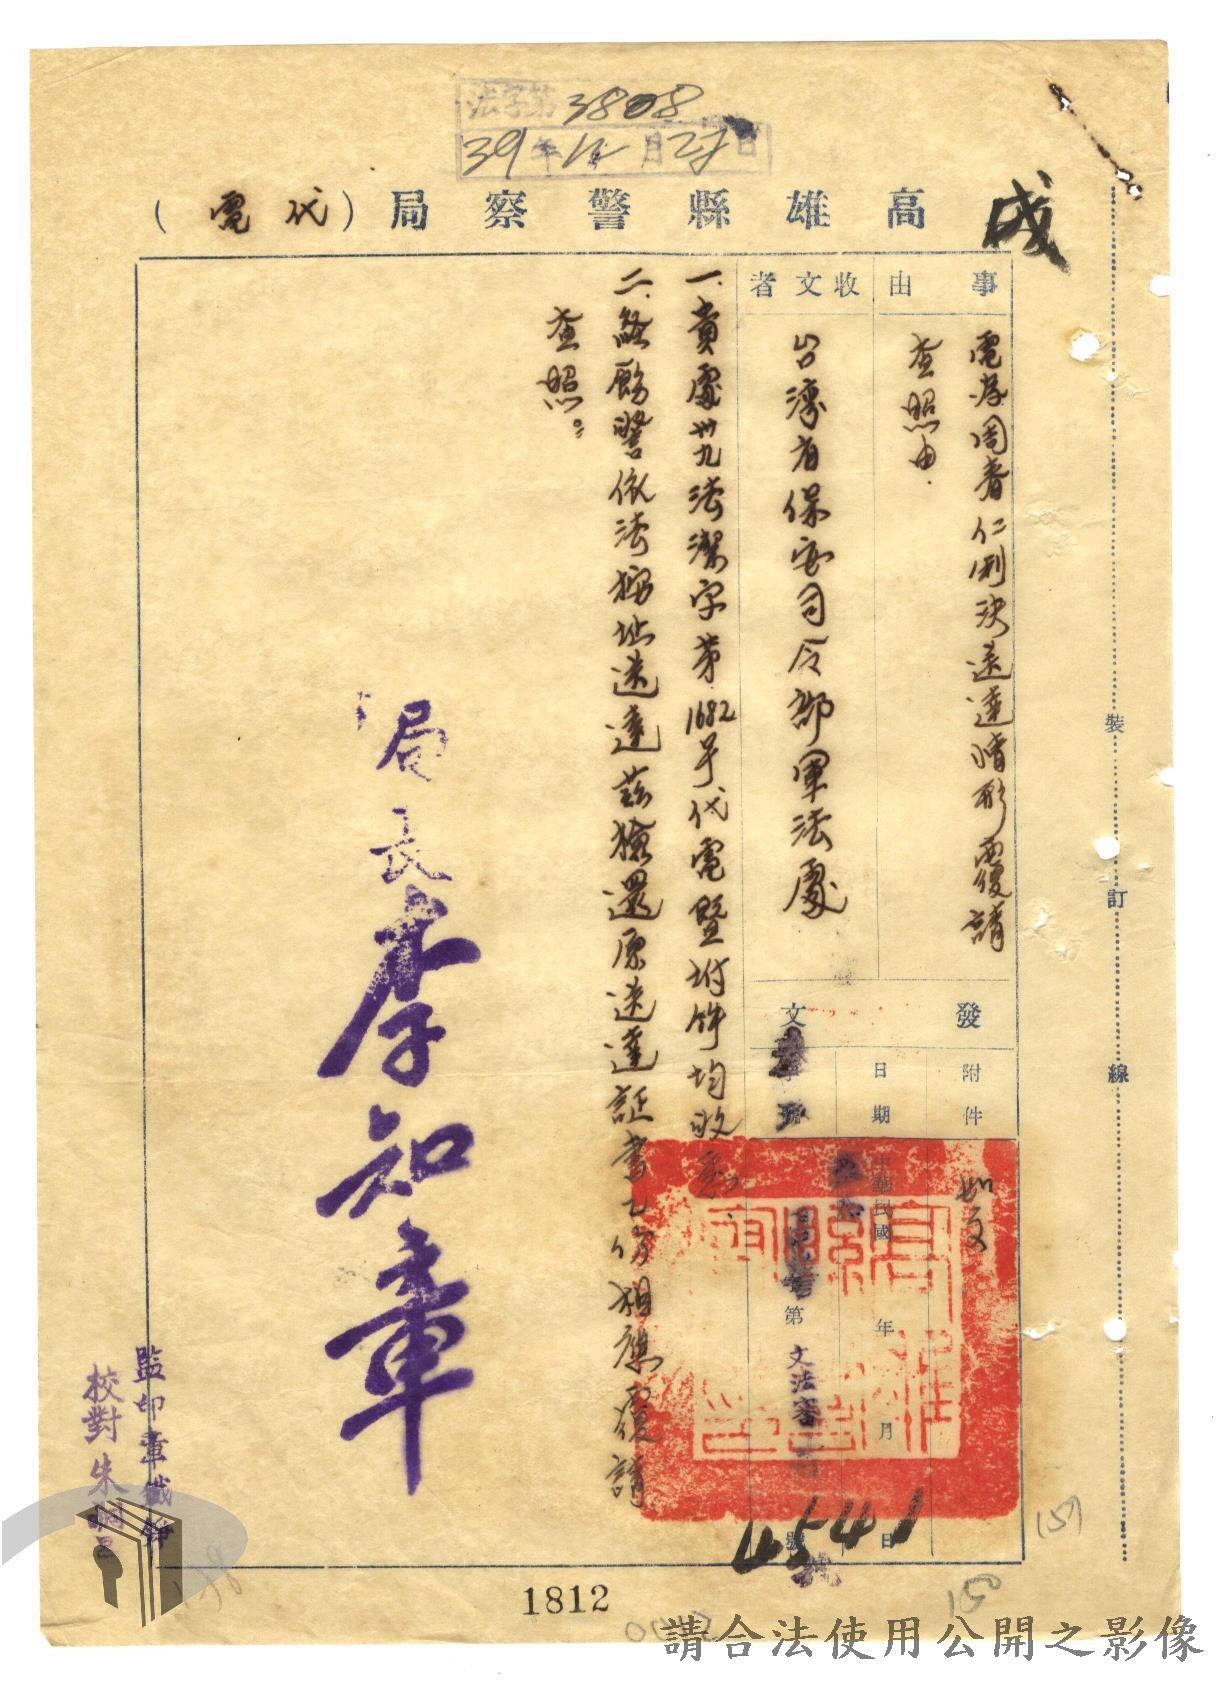 法字第3808
39年12月27日
高雄縣警察局(代電)
事由
電為周春仁判決送達情形覆請
查照由.
收文者
台灣省保安司令部軍法處
發文
附件
如文
日期
中華民國 年 月 日
字號
第 號
文法審
4541
一.貴處卅九法潔字第1682号代電暨坿件均收悉.
二.經飭警依法按址送達茲檢還原送達証書乙份相應覆請
查照。
局長李知章
監印章
校對朱
裝訂線
1812
151
150
請合法使用公開之影像